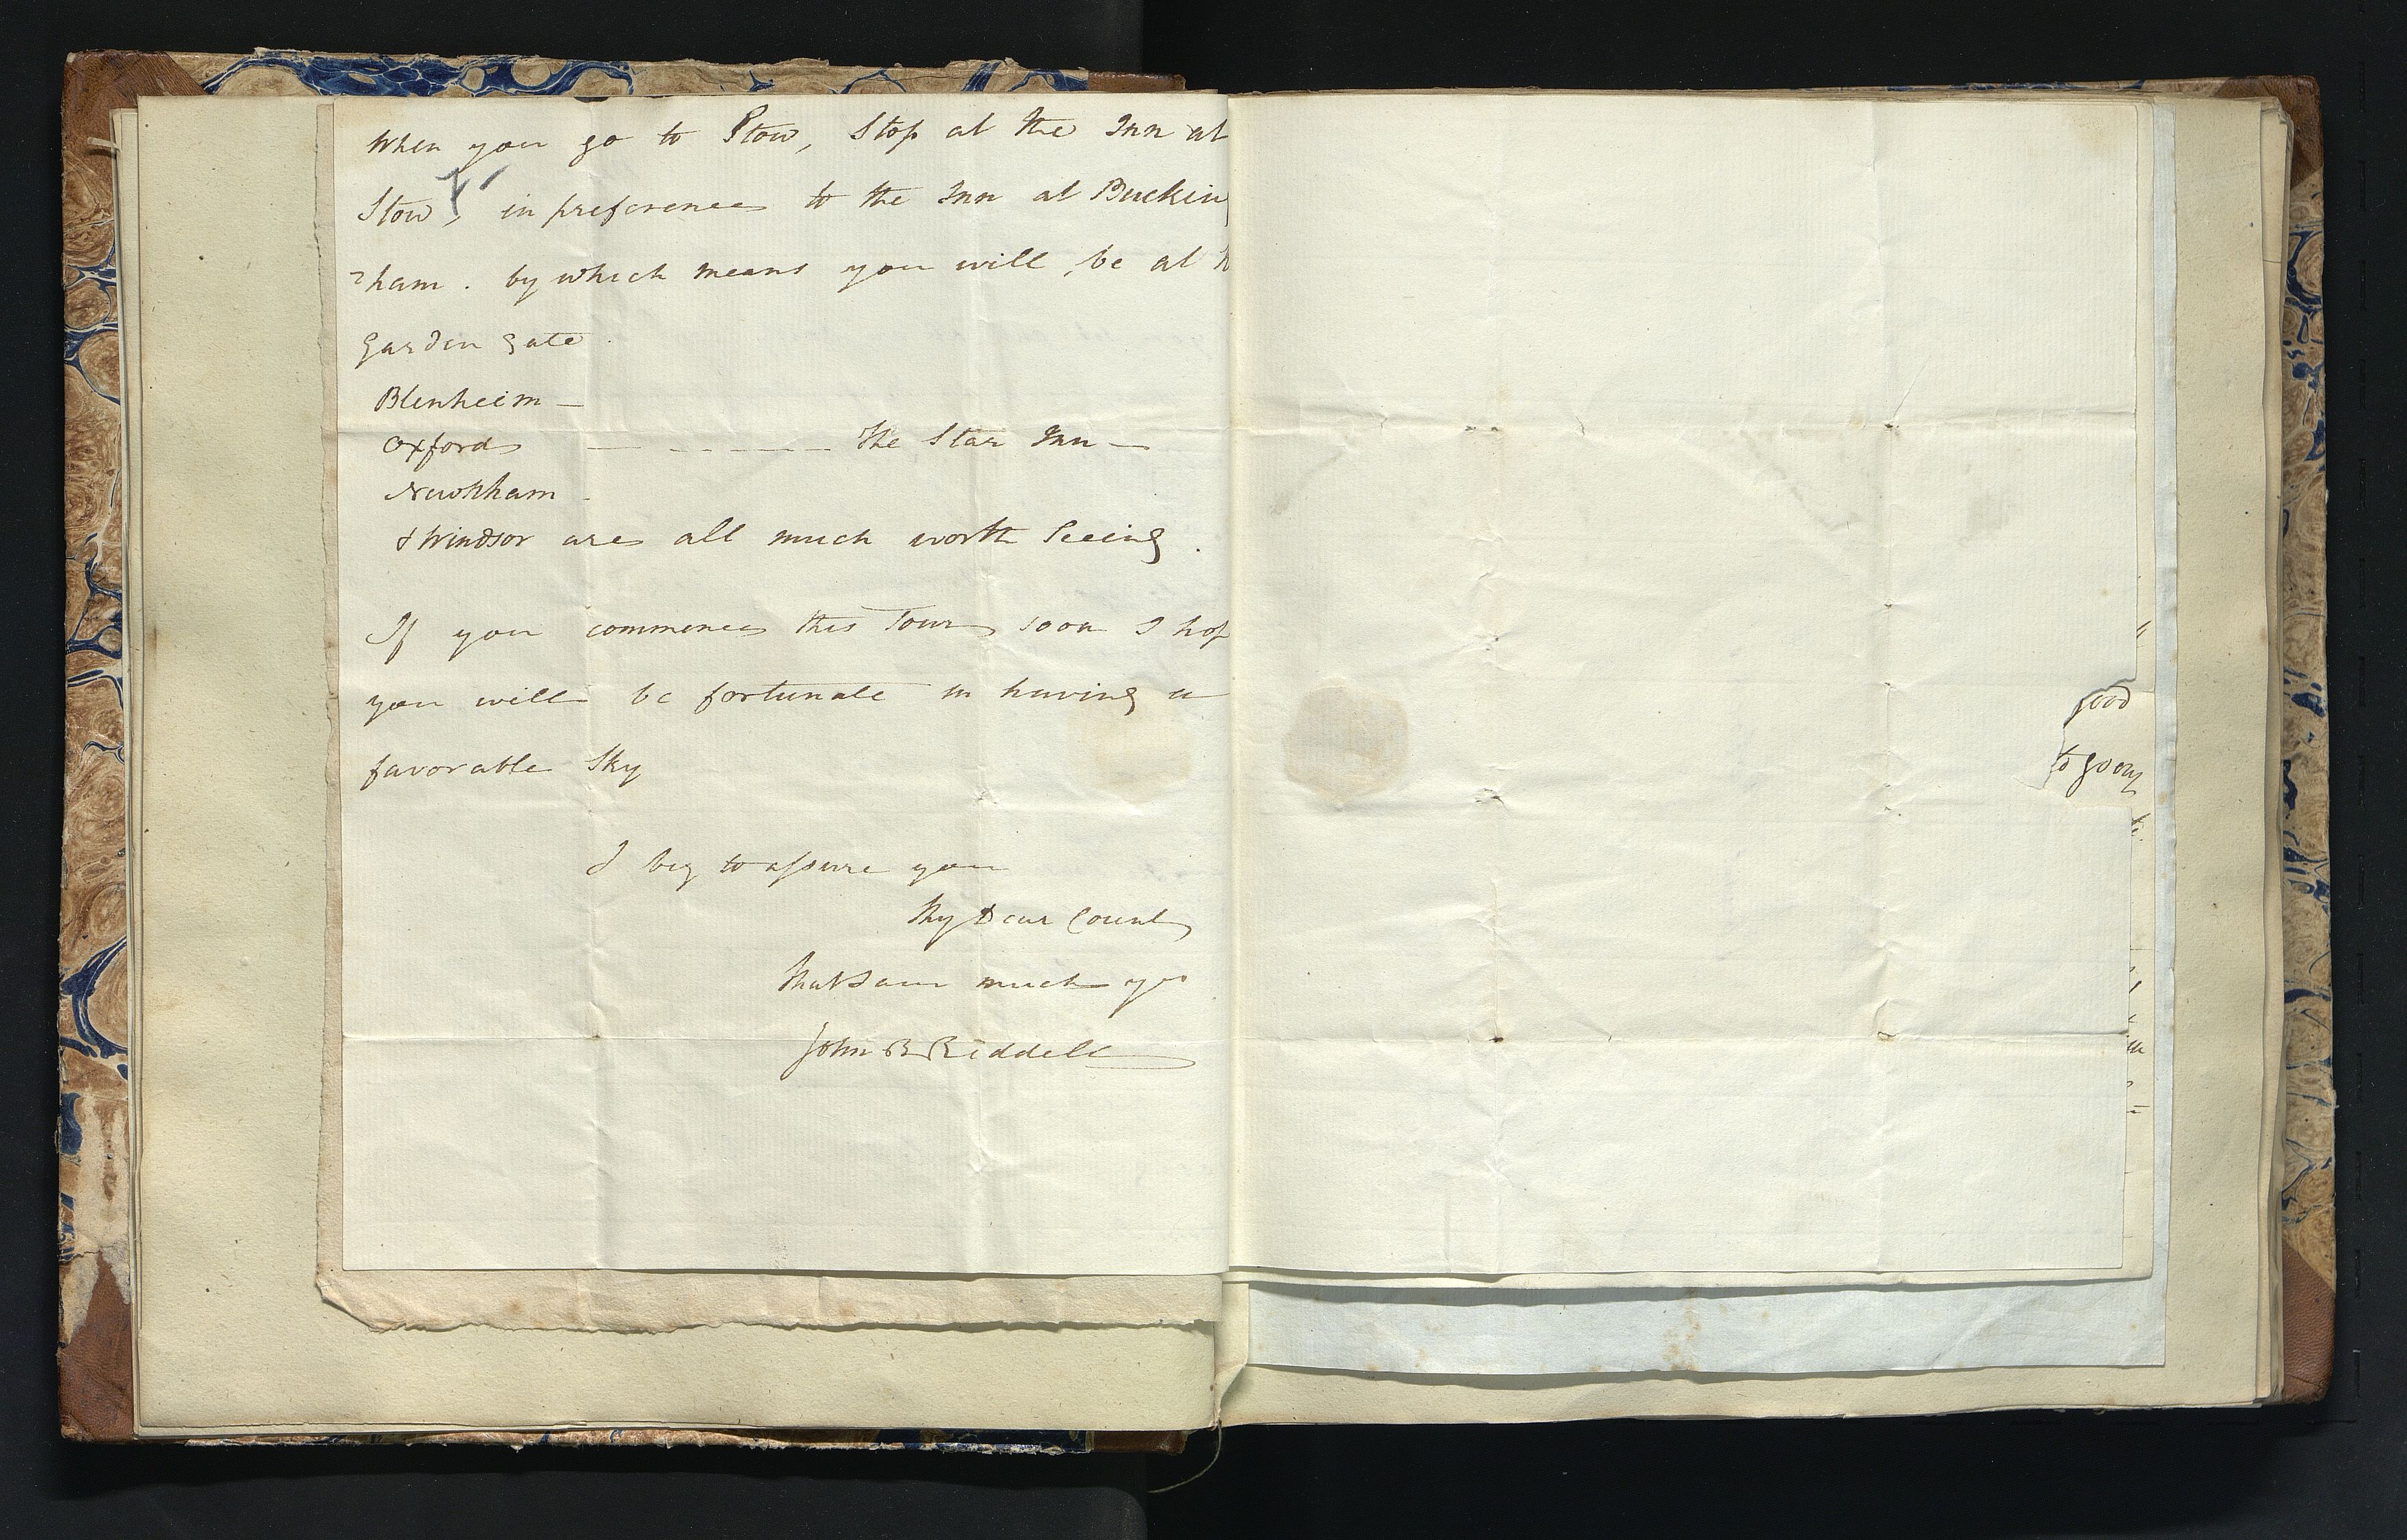 When you go to Stow, Stop at the Inn at
Stow, in preference to the Inn at Buckin
ham. by which means you will be at
Garden Gate.
Blenheim —
Oxford — - - — — The Star Inn —
Newnham -
& Windsor are all much worth Seeing.
If you commence this Tour soon I hop
you will be fortunate in having a
favorable Sky
I beg to assure you
My Dear Count
that I am much yrs
John B Riddell
good
to